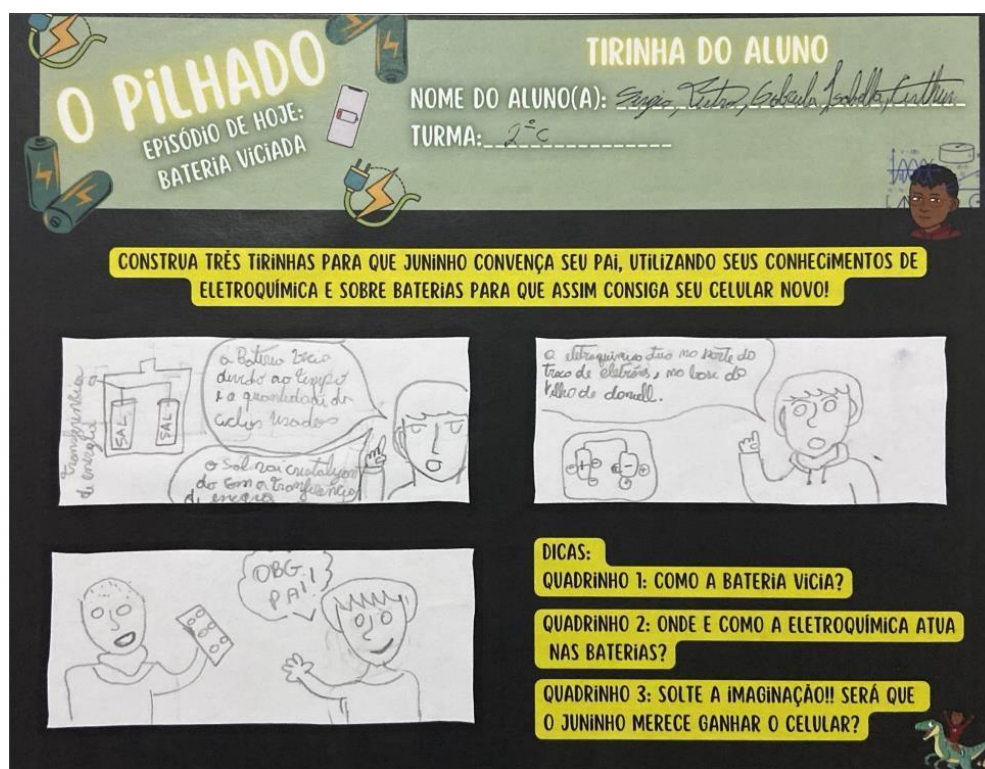 O PILHADO
EPISÓDIO DE HOJE:
BATERIA VICIADA
TIRINHA DO ALUNO
NOME DO ALUNO(A): Sergio, Isabella, Arthur
TURMA: 2º C
CONSTRUA TRÊS TIRINHAS PARA QUE JUNINHO CONVENÇA SEU PAI, UTILIZANDO SEUS CONHECIMENTOS DE
ELETROQUÍMICA E SOBRE BATERIAS PARA QUE ASSIM CONSIGA SEU CELULAR NOVO!
transferência
de energia
SAL
SAL
a Bateria vicia
devido ao tempo
e a quantidade de
ciclos usados
o Sal vai cristalizan
do com a transferência
de energia
a eletroquímica atua na parte da
troca de eletrões, na base da
pilha de daniell.
+
-
OBG
PAI!!
DICAS:
QUADRINHO 1: COMO A BATERIA VICIA?
QUADRINHO 2: ONDE E COMO A ELETROQUÍMICA ATUA
NAS BATERIAS?
QUADRINHO 3: SOLTE A IMAGINAÇÃO!! SERÁ QUE
O JUNINHO MERECE GANHAR O CELULAR?